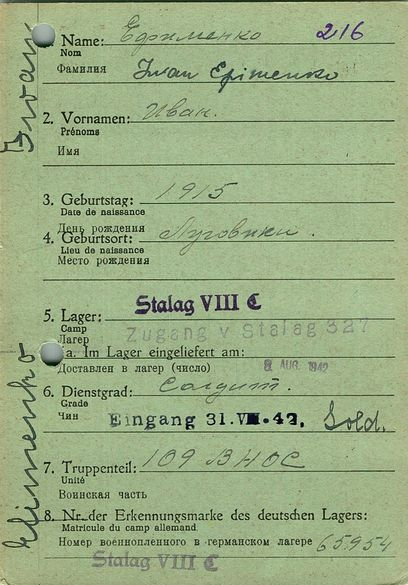 Name: Ефименко 216
Nom
Фамилия Iwan Efimenko
2. Vornamen: Иван.
Prénoms
Имя
3. Geburtstag: 1915
Date de naissance
День рождения
4. Geburtsort: Луговики.
Lieu de naissance
Место рождения
Stalag VIII C
5. Lager:
Camp
Zugang v Stalag 327
Лагер
a. Im Lager eingeliefert am:
Доставлен в лагер (число) AUG. 1942
6. Dienstgrad: Солдат.
Grade
Чин Eingang 31. .42. Sold.
7. Truppenteil: 109 ВНОС
Unité
Воинская часть
8. Nr. der Erkennungsmarke des deutschen Lagers:
Matricule du camp allemand.
Номер военнопленного в германском лагере 65954
Stalag VIII C
Iwan
Efimenko